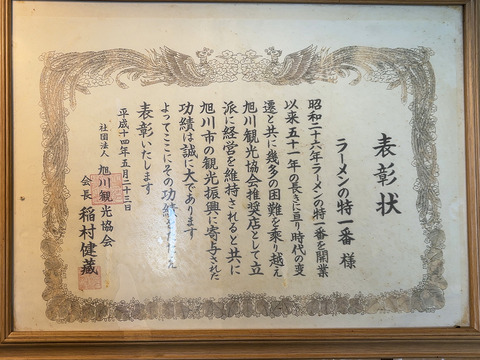 表彰状
ラーメンの特一番 様
昭和二十六年ラーメンの特一番を開業
以来五十一年の長きに亘り時代の変
遷と共に幾多の困難を乗り越え
旭川観光協会推奨店として立
派に経営を維持されると共に
旭川市の観光振興に寄与された
功績は誠に大であります
よってここにその功績を
え
表彰いたします
平成十四年五月二十三日
社団法人 旭川観光協会
会長 稲村健蔵